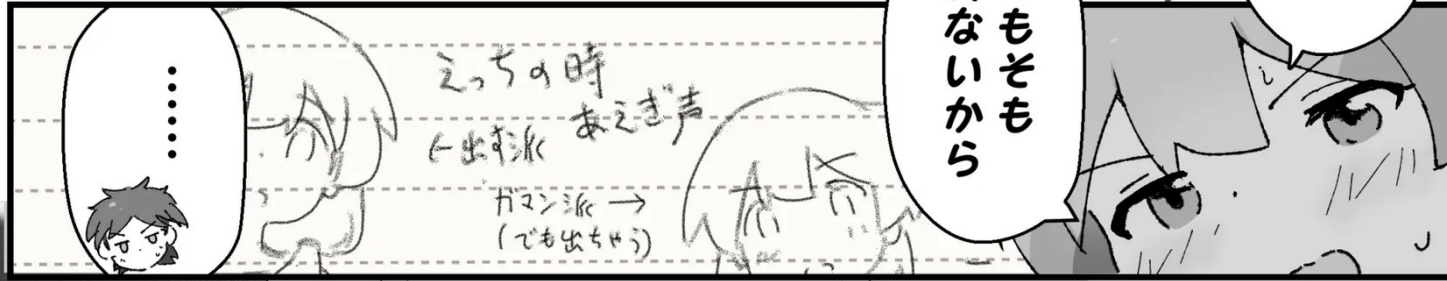 もそも
ないから
えっちの時
あえぎ声
←出す派
ガマン派→
(でも出ちゃう)
……